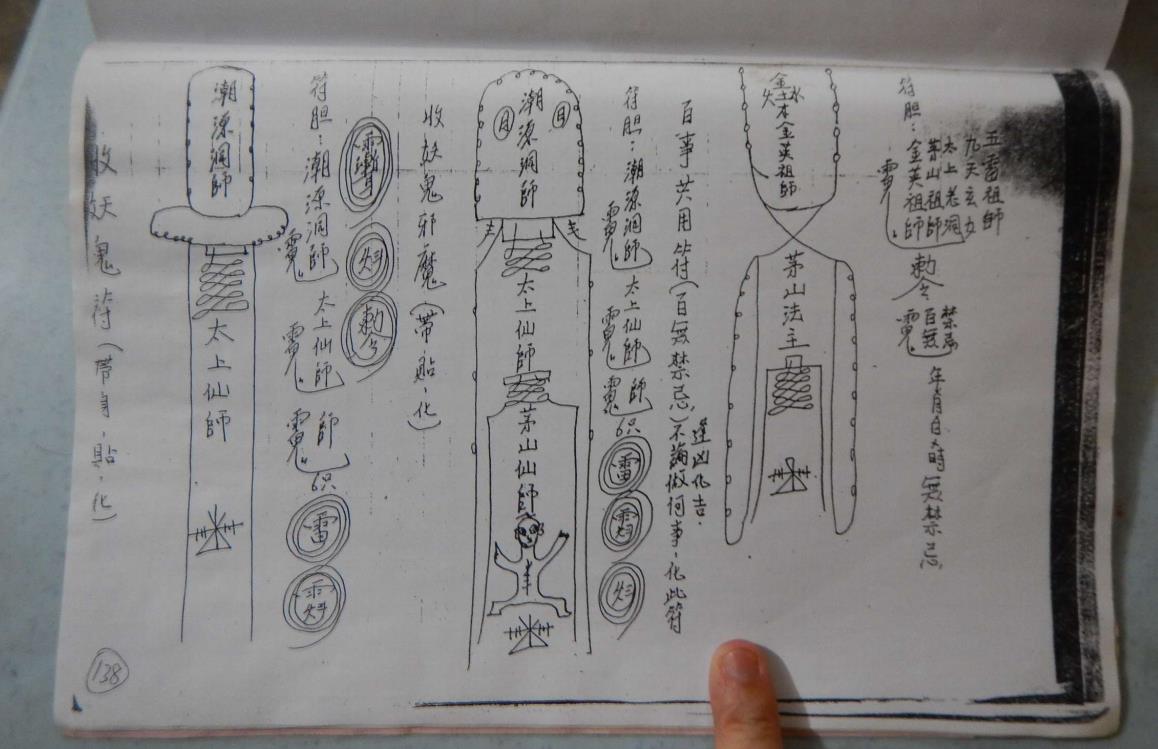 五雷祖師
九天玄女
太上老洞
茅山祖師
符胆：金英祖師
勅令
禁忌
百無
年月日時無禁忌
金
火土水
木
金英祖師
茅山法主
逢凶化吉.
百事共用符（百無禁忌）不論做何事，化此符
符胆：潮源洞師
太上仙師
師
雷
潮源洞師
日
月
太上仙師
茅山仙師
收妖鬼邪魔（帶，貼，化）
勅令
符胆：潮源洞師
太上仙師
師
雷
潮源洞師
太上仙師
收妖鬼符（帶身，貼，化）
138